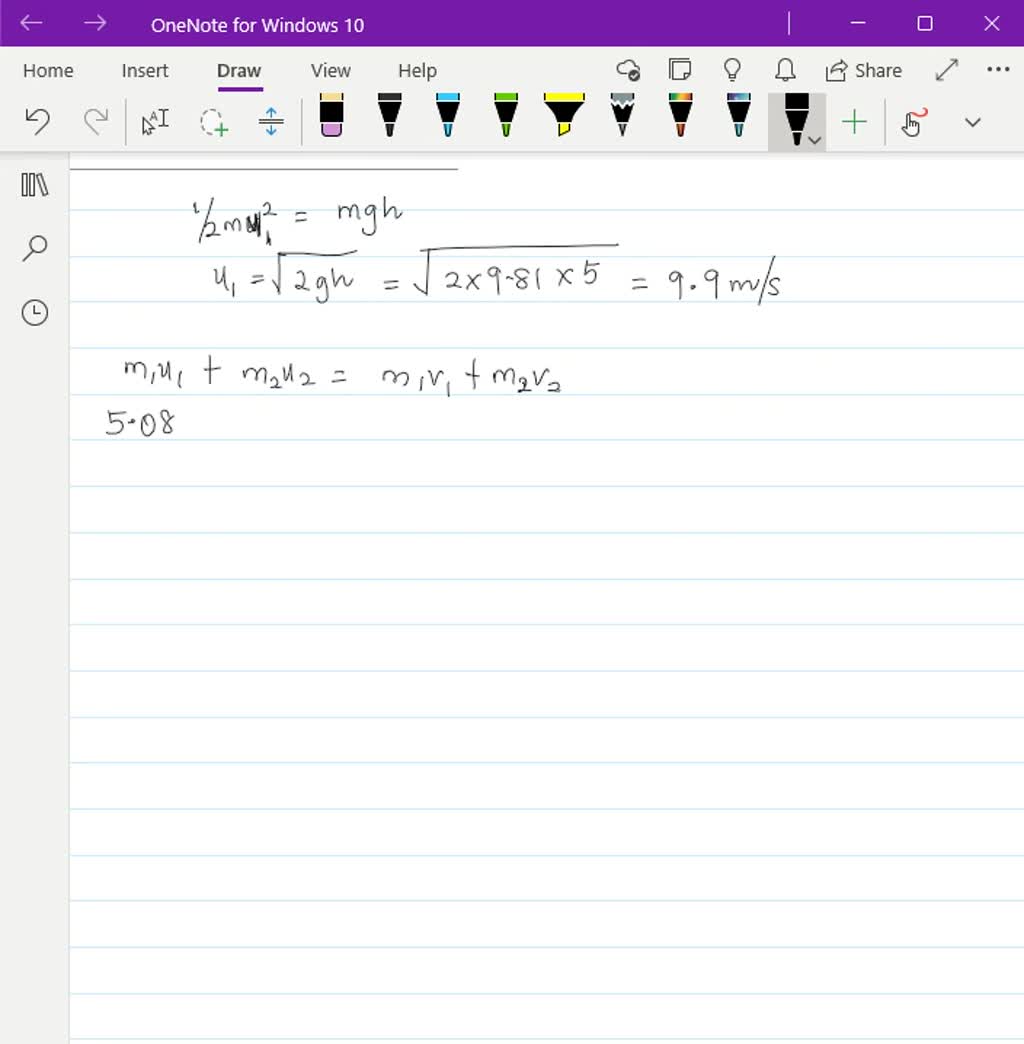 OneNote for Windows 10
Home Insert Draw View Help Share
1/2 mu₁² = mgh
u₁ = √2gh = √2×9.81×5 = 9.9 m/s
m₁u₁ + m₂u₂ = m₁v₁ + m₂v₂
5.08